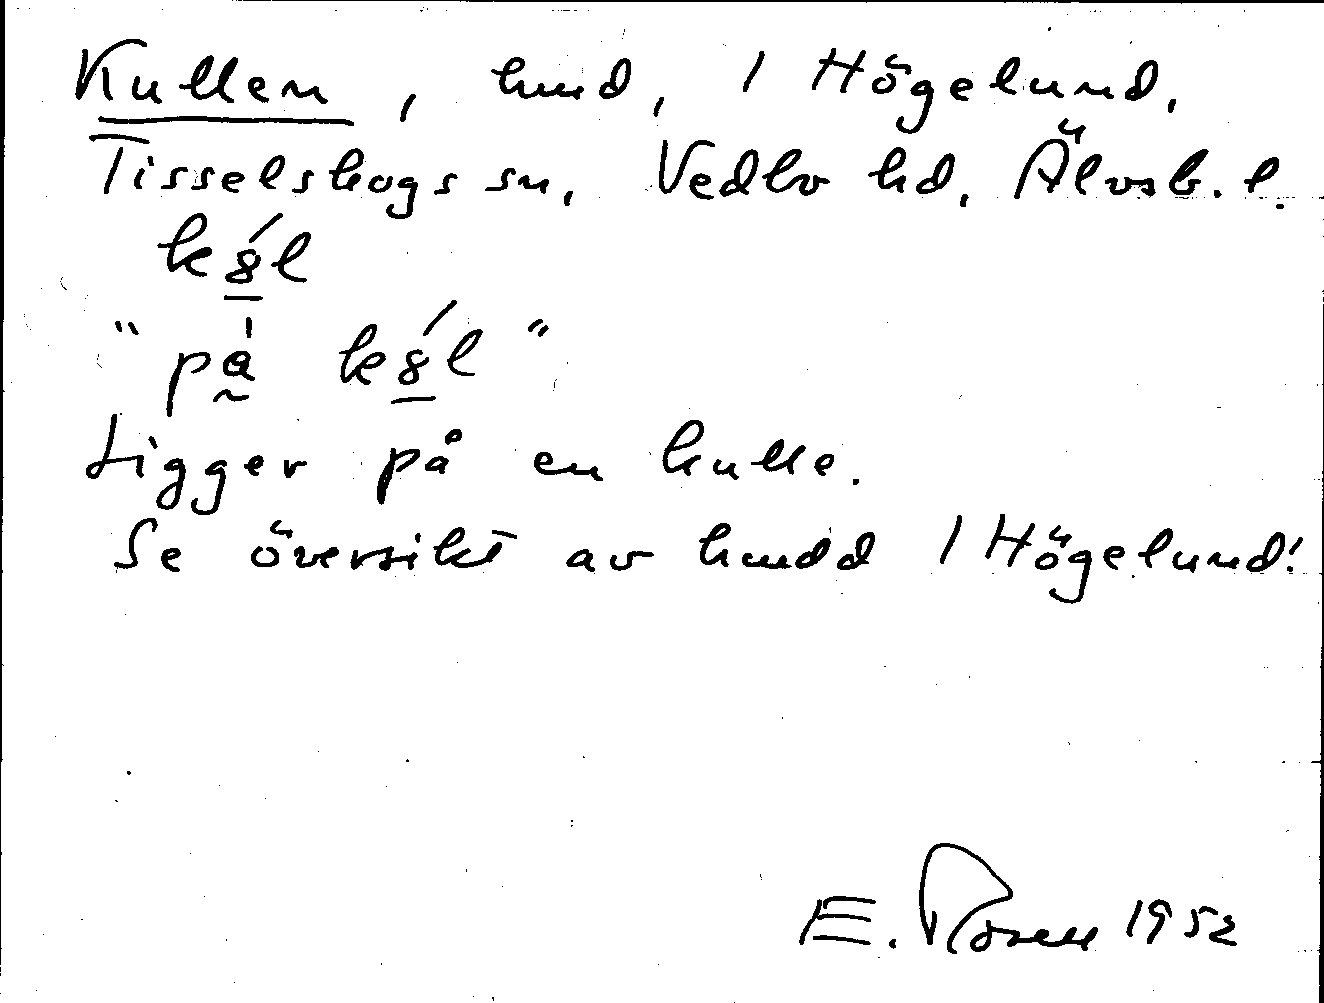 Kullen, hmd, 1 Högelund,
Tisselskogs sn, Vedbo hd, Älvsb. l.
k8́l
"på k8́l"
Ligger på en kulle.
Se översikt av hmdd 1 Högelund!
E. Rosell 1952